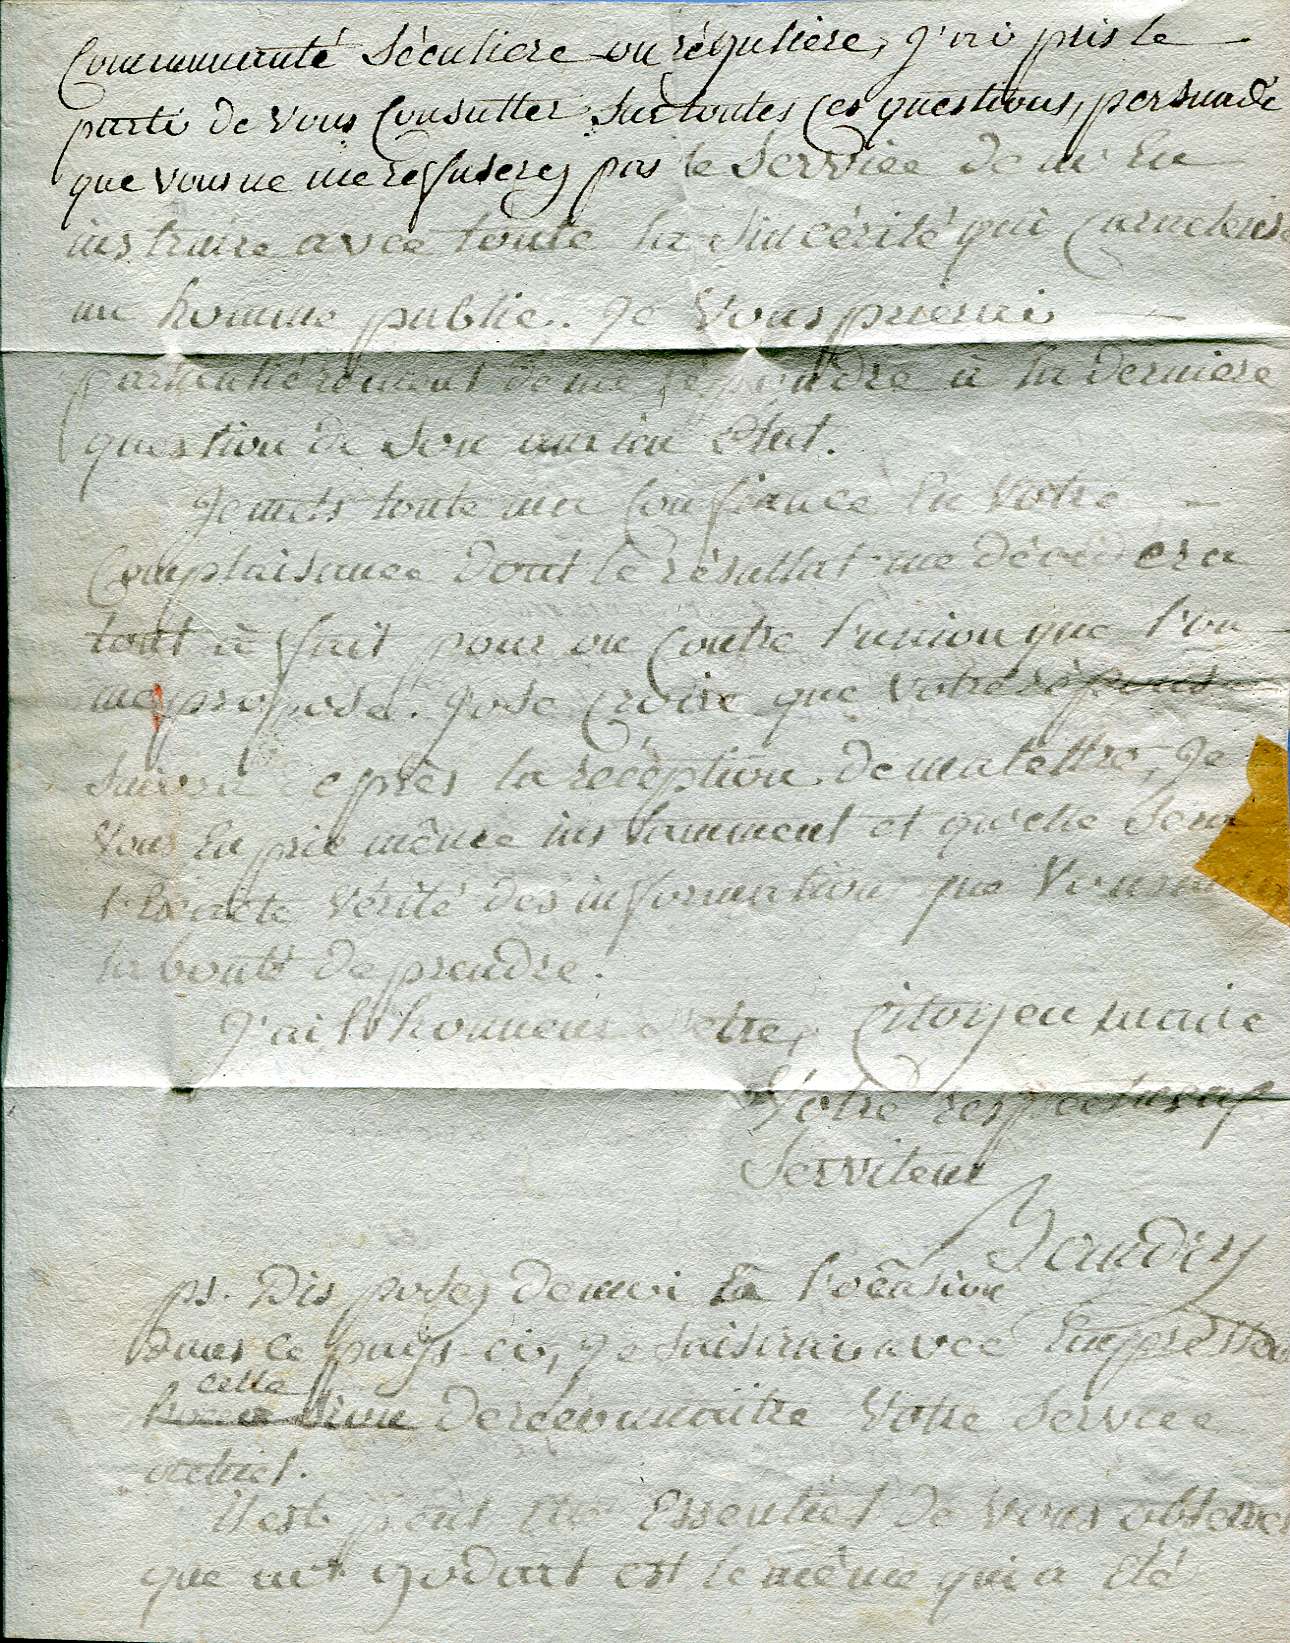 Communauté Séculiere ou régulière, j'ai pris le
parti de vous Consulter sur toutes ces questions, persuadé
que vous ne me refuserez pas le Service de m'En
instruire avec toute la Sincérité qui Caractérise
un homme public. Je Vous prierai
particulièrement de me répondre à la derniere
question de Son ancien Etat.
Je mets toute ma Confiance En Votre
Complaisance dont le résultat me décidera
tout à fait pour ou Contre l'union que l'on
me propose. J'ose Croire que Votre réponse
Suivra après la réception de ma lettre, Je
Vous En prie même instamment et qu'elle Sera
l'Exacte Vérité des informations que Vous
la bonté de prendre.
J'ai l'honneur d'etre, Citoyen maire
Votre respectueux
Serviteur
ps. Disposez de moi En l'ocasion
dans ce pays-ci, je saisirai avec Empressem
cette
de reconnaitre Votre Service
actuel.
il est peut être Essentiel de Vous observer
que mr godart est le même qui a Eté